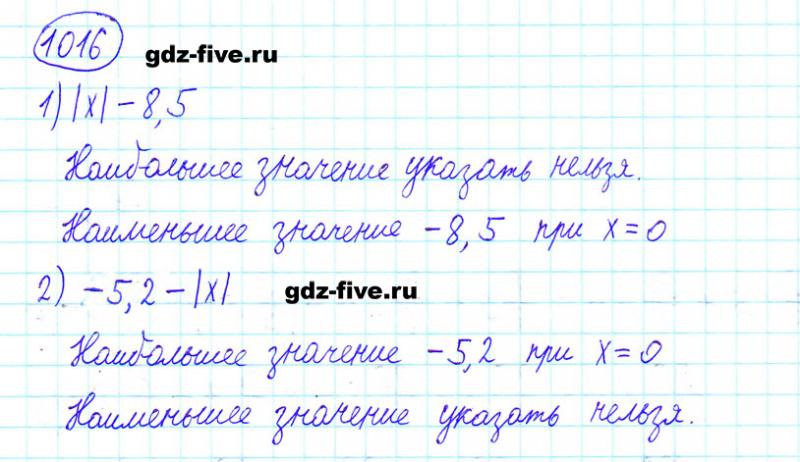 1016 gdz-five.ru
1) |x| - 8,5
Наибольшее значение указать нельзя.
Наименьшее значение -8,5 при x=0
2) -5,2-|x| gdz-five.ru
Наибольшее значение -5,2 при x=0
Наименьшее значение указать нельзя.